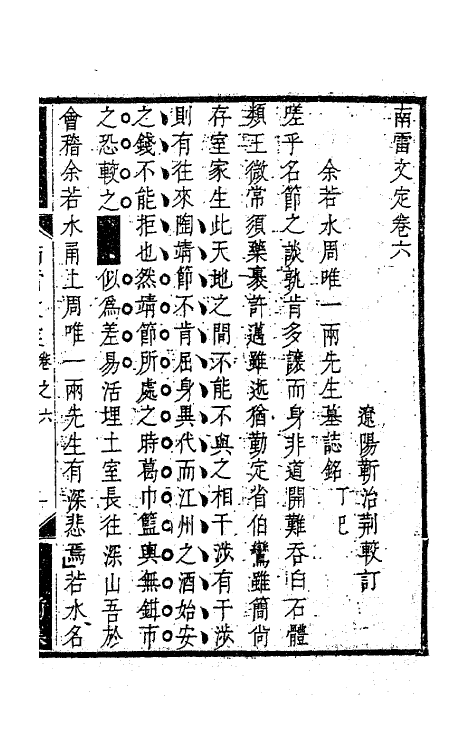 南雷文定卷六
遼陽靳治荆較訂
余若水周唯一兩先生墓誌銘 丁巳
嗟乎名節之談孰肯多讓而身非道開難吞白石體
類王微常須藥裹許邁雖逝猶勤定省伯鸞雖簡尙
存室家生此天地之間不能不與之相干涉有干涉
則有往來陶靖節不肯屈身異代而江州之酒始安
之錢不能拒也然靖節所處之時葛巾籃輿無鉗市
之恐較之 似爲差易活埋土室長往深山吾於
會稽余若水甬上周唯一兩先生有深悲焉若水名
卷之六 一